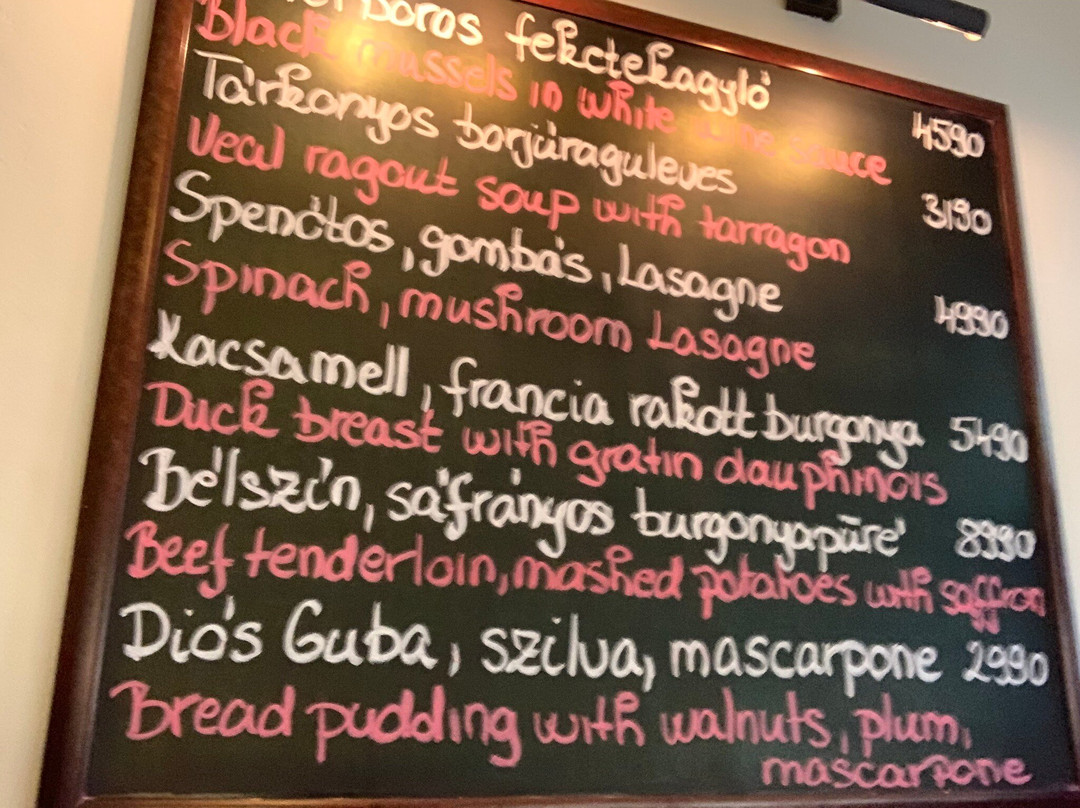 fekctekagyló 4590
Black mussels in white wine sauce
Tárkonyos borjúraguleves 3190
Veal ragout soup with tarragon
Spenótos, gombás, Lasagne 4990
Spinach, mushroom Lasagne
Kacsamell, francia rakott burgonya 5490
Duck breast with gratin dauphinois
Bélszín, sáfrányos burgonyapüré 8990
Beef tenderloin, mashed potatoes with saffron
Diós Guba, szilva, mascarpone 2990
Bread pudding with walnuts, plum,
mascarpone